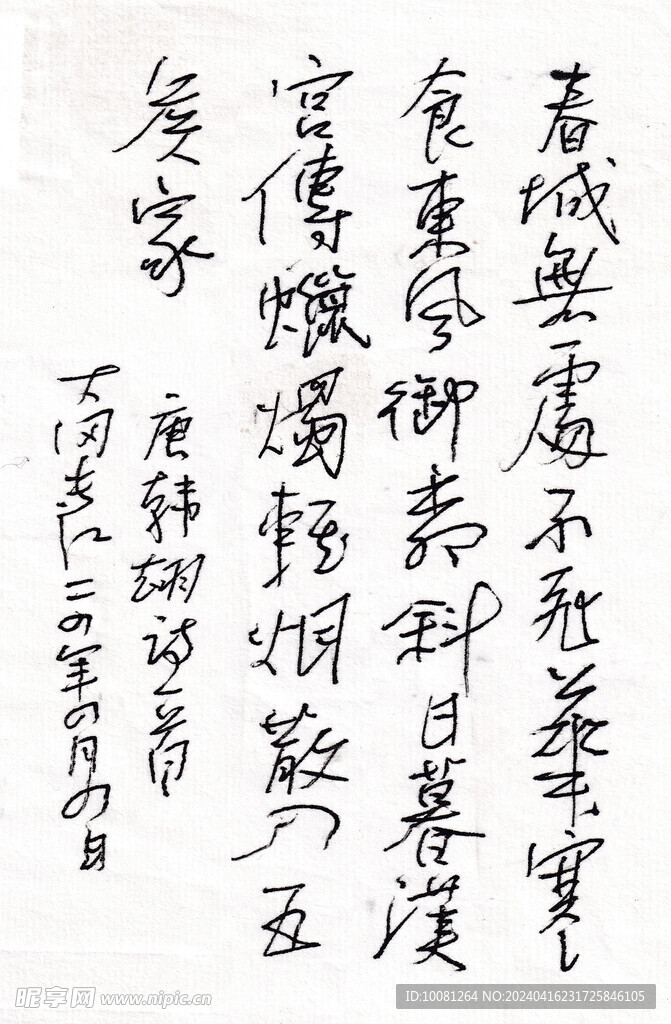 春城無處不飛華寒
食東風御柳斜日暮漢
宮傳蠟燭輕烟散入五
侯家
唐韩翃诗一首
大江二四年四月日
昵享网 www.nipic.cn
ID:10081264 NO:20240416231725846105